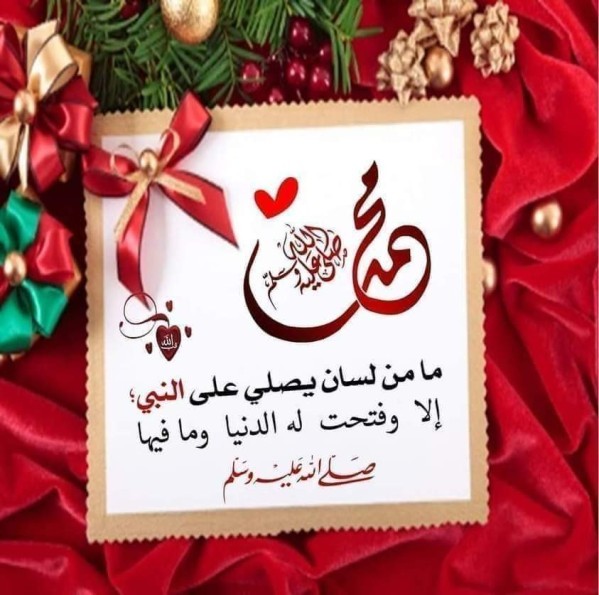 محمد
صلى الله عليه وسلم
ما من لسان يصلي على النبي؛
إلا وفتحت له الدنيا وما فيها
صَلَّى اللهُ عَلَيْهِ وَسَلَّم